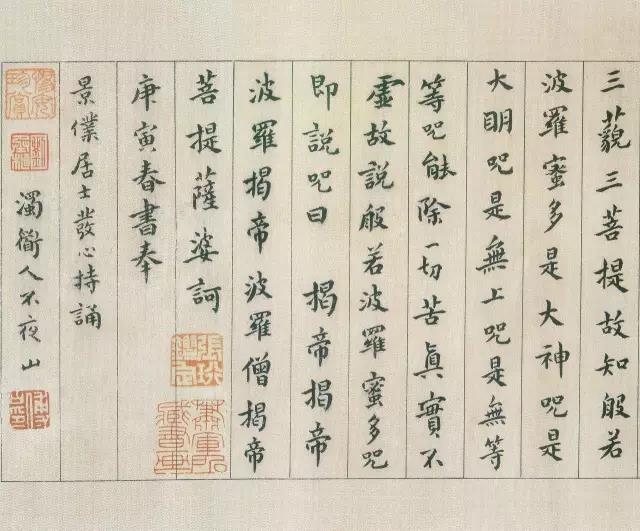 三藐三菩提故知般若
波羅蜜多是大神呪是
大明呪是無上呪是無等
等呪能除一切苦眞實不
虛故說般若波羅蜜多呪
即說呪曰 揭帝揭帝
波羅揭帝波羅僧揭帝
菩提薩婆訶
庚寅春書奉
景僕居士發心持誦
濁人不夜山